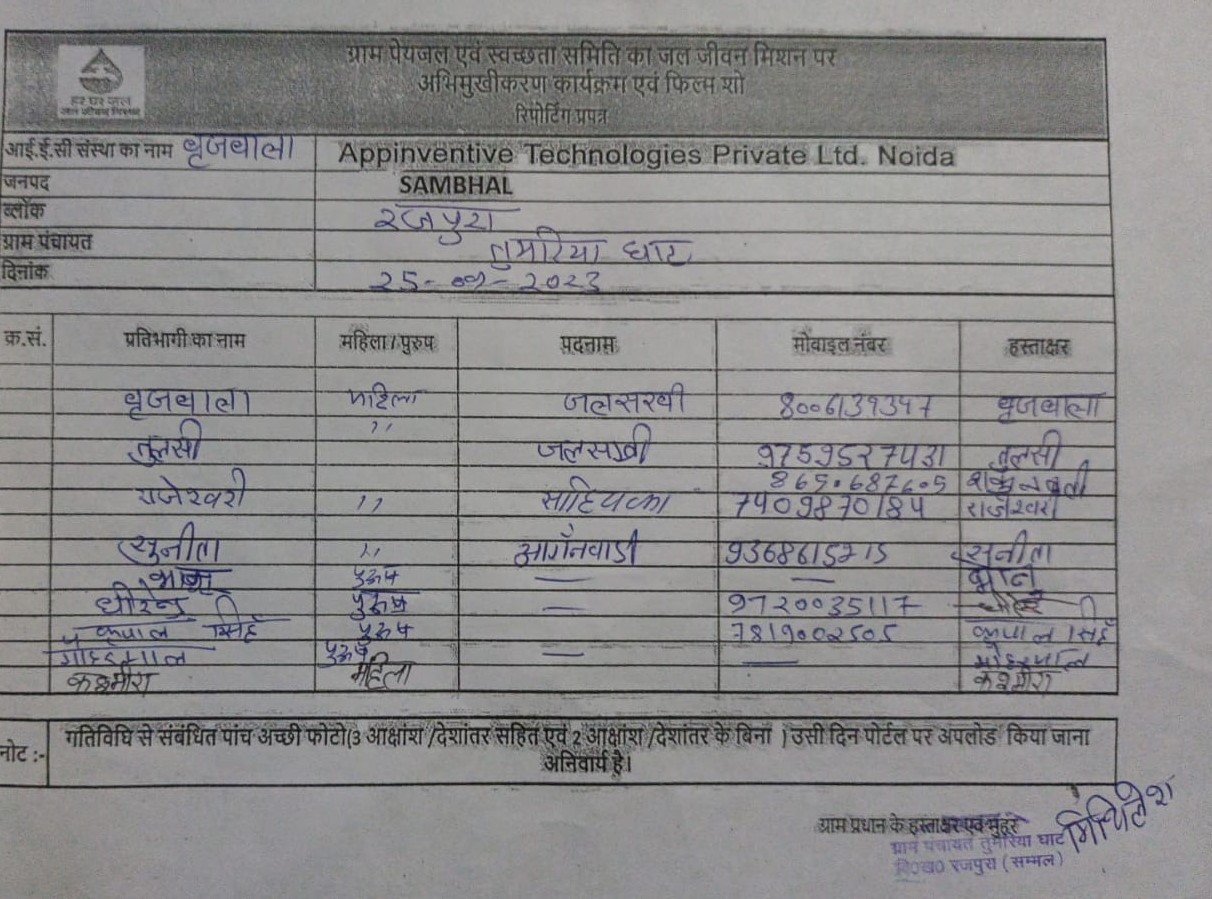 हर घर जल
जल जीवन मिशन
ग्राम पेयजल एवं स्वच्छता समिति का जल जीवन मिशन पर
अभिमुखीकरण कार्यक्रम एवं फिल्म शो
रिपोर्टिंग प्रपत्र
आई.ई.सी संस्था का नाम बृजबाला Appinventive Technologies Private Ltd. Noida
जनपद SAMBHAL
ब्लॉक रजपुरा
ग्राम पंचायत तुमरिया घाट
दिनांक 25-09-2023
क्र.सं. प्रतिभागी का नाम महिला / पुरुष पदनाम मोबाइल नंबर हस्ताक्षर
बृजबाला महिला जलसखी 8006139347 बृजबाला
तुलसी ,, जलसखी 9759527431 तुलसी
8650687605
राजेश्वरी ,, साहियका 7409870184 राजेश्वरी
सुनीता ,, आगँनवाडी 9368615715 सुनीता
पुरूष —  —
धीरेन्द्र पुरूष — 9720035117
कृपाल सिहँ पुरूष 7819002505 कृपाल सिहँ
पुरूष — —
कश्मीरा महिला कश्मीरा
नोट :- गतिविधि से संबंधित पांच अच्छी फोटो(3 आक्षांश /देशांतर सहित एवं 2 आक्षांश /देशांतर के बिना ) उसी दिन पोर्टल पर अपलोड किया जाना
अनिवार्य है।
ग्राम प्रधान के हस्ताक्षर एवं मुहर
मिथिलेश
ग्राम पंचायत तुमरिया घाट
वि०ख० रजपुरा (सम्भल)